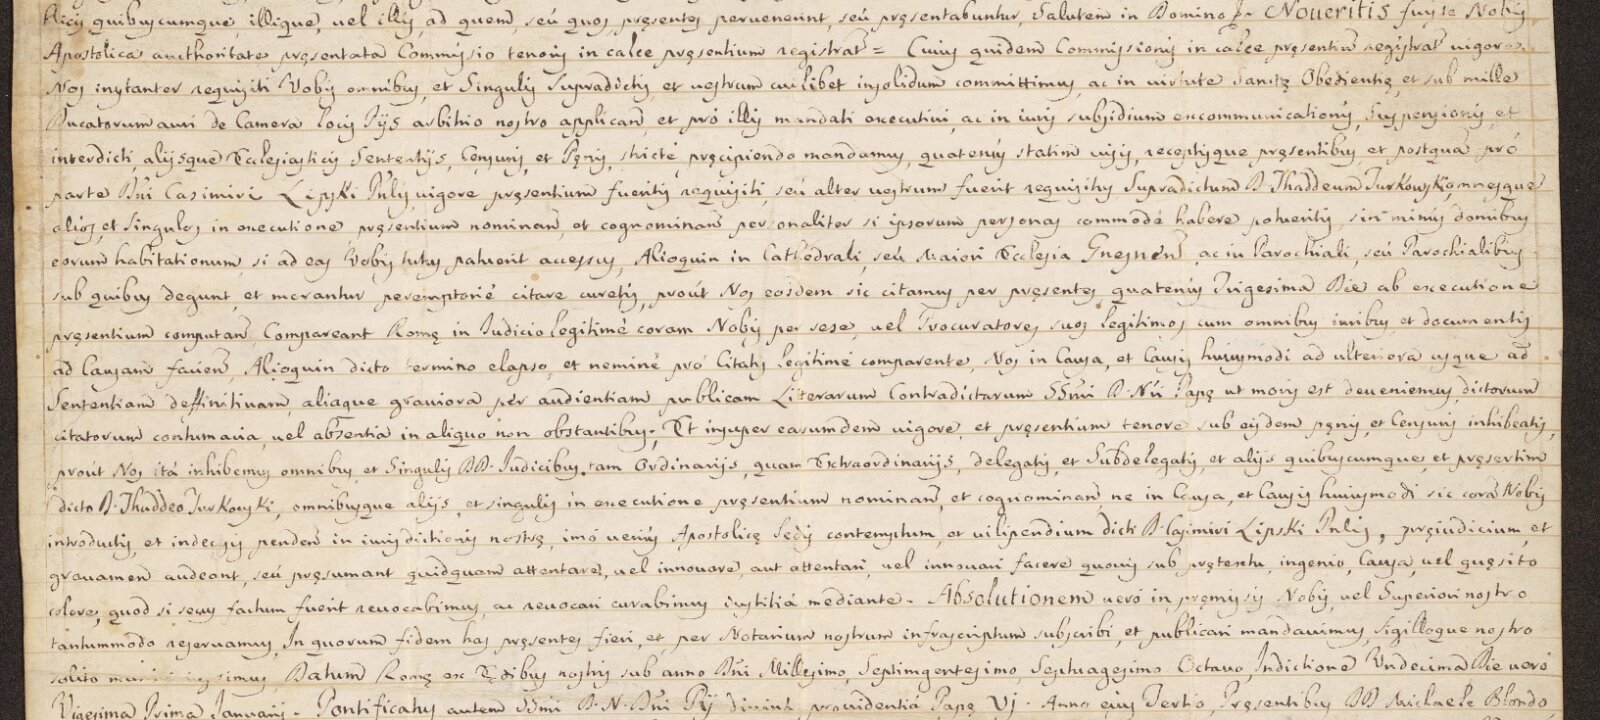 quibuscumque, illique, vel illis, ad quem, seú quos, pręsentes pervenerint, seú pręsentabuntur, Salutem in Domino Noveritis fuisse Nobis
Apostolica aucthoritate pręsentata Commissio tenoris in calce pręsentium registrat = Cuius quidem Commissionis in calce pręsentiu registrat vigore
Nos instanter requisiti Vobis omnibus, et Singulis Supradictis, et vestrum cuilibet insolidum committimus, ac in virtute Sanctę Obedientię, et sub mille
Ducatorum auri de Camera locis Pijs arbitrio nostro applican, et pró illis mandati executivi, ac in iuris subsidium excommunicationis, Suspensionis, et
interdicti, alijsque Ecclesiasticis Sententijs, Censuris, et Pęnis, stricté pręcipiendo mandamus, quatenús statim visis, receptisque pręsentibus, et postqua pró
parte Dni Casimiri Lipski Pnlis, vigore pręsentium fueritis requisiti, seú alter vestrum fuerit requisitus Supradictum D. Thaddeum Turkowski, omnesque
alios, et Singulos in executione pręsentium nominan, et cognominan personaliter si ipsorum personas commodé habere poteritis, sin minús domibus
eorum habitationum, si ad eas Vobis tutus patuerit accessus, Alioquin in Cathedrali, seú Maiori Ecclesia Gnesnen, ac in Parochiali, seú Parochialibus
sub quibus degunt, et morantur peremptorié citare curetis, proút Nos eosdem sic citamus per pręsentes quatenús Trigesima Die ab executione
pręsentium computan, Compareant Romę in Judicio legitimé coram Nobis per sese, vel Procuratores suos legitimos cum omnibus iuribus, et documentis
ad Causam facien, Alioquin dicto termino elapso, et neminé pró Citatis legitimé comparente, Nos in Causa, et Causis huiusmodi ad ulteriora usque ad
Sententiam deffinitivam, aliaque graviora per audientiam publicam Literarum Contradictarum SSmi D. Nri Papę ut moris est deveniemus, dictorum
citatorum contumacia, vel absentia in aliquo non obstantibus. Et insuper easumdem vigore, et pręsentium tenore sub eisdem pęnis, et Censuris inhibeatis,
proút Nos itá inhibemus omnibus, et Singulis DD. Judicibus tam Ordinarijs, quam Extraordinarijs, delegatis, et Subdelegatis, et alijs quibuscumque, et pręsertim
dicto D. Thaddeo Turkowski, omnibusque alijs, et singulis in executione pręsentium nominan, et cognominan, ne in Causa, et Causis huiusmodi sic corã Nobis
introductis, et indecisis penden in iurisdictionis nostrę, imó veriús Apostolicę Sedis contemptum, et vilipendium dicti D. Casimiri Lipski Pnlis, pręiudicium, et
gravamen audeant, seú pręsumant quidquam attentare, vel innovare, aut attentari, vel innovari facere quovis sub prętextu, ingenio, Causa, vel quęsito
colore, quod si secus factum fuerit revocabimus, ac revocari curabimus iustitiá mediante. Absolutionem veró in pręmissis Nobis, vel Superiori nostro
tantummodo reservamus, In quorum fidem has pręsentes fieri, et per Notarium nostrum infrascriptum subscribi, et publicari mandavimus, Sigilloque nostro
solito Datum Romę ex Ędibus nostris sub anno Dni Millesimo, Septingentesimo, Septuagesimo Octavo, Indictione Undecima Die veró
Vigesima Prima Januarij. Pontificatus autem SSmi D. N. Dni Pij divina providentia Papę VI. Anno eius Tertio, Pręsentibus DD. Michaele Blondo